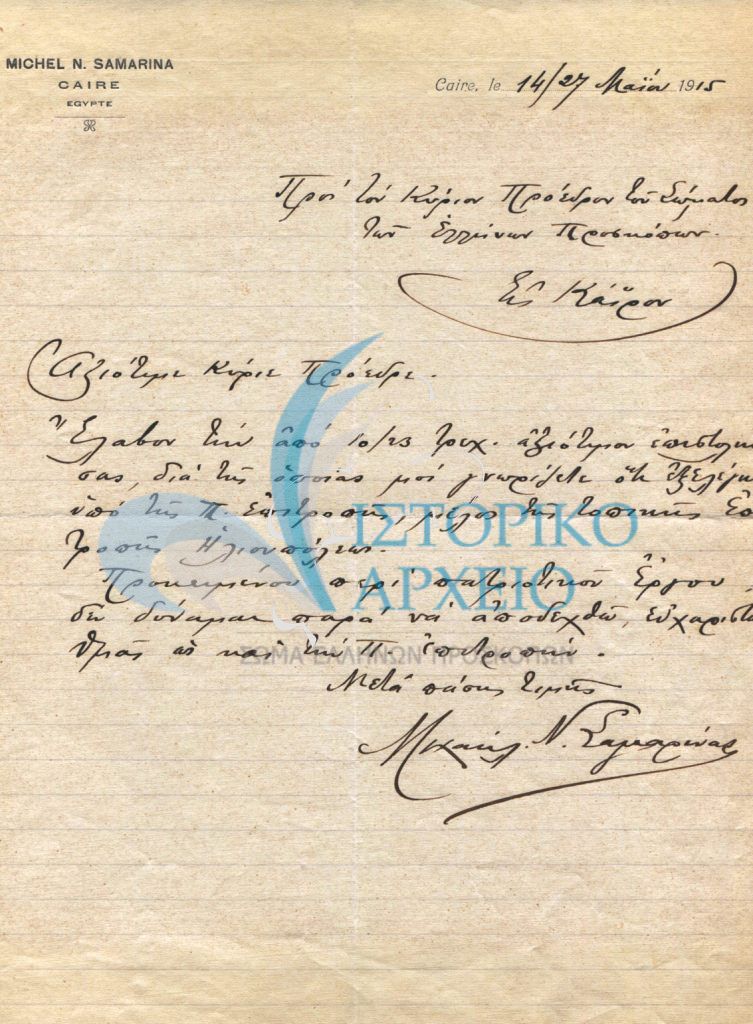 MICHEL N. SAMARINA
CAIRE
EGYPTE
Caire, le 14/27 Μαΐου 1915
Πρὸς τὸν Κύριον Πρόεδρον τοῦ Σώματος
τῶν Ἑλλήνων Προσκόπων.
Εἰς Κάϊρον
Ἀξιότιμε Κύριε Πρόεδρε.
Ἔλαβον τὴν ἀπὸ 10/23 τρεχ. ἀξιότιμον ἐπιστολὴν
σας, διὰ τῆς ὁποίας μοὶ γνωρίζετε ὅτι ἐξελέγη
ὑπὸ τῆς Π. Ἐπιτροπῆς, μέλος τῆς τοπικῆς Ἐπι
τροπῆς Ἡλιουπόλεως.
Προκειμένου περὶ πατριωτικοῦ Ἔργου
δὲν δύναμαι παρὰ νὰ ἀποδεχθῶ, εὐχαριστῶ
Ὑμᾶς ὡς καὶ τὴν Π. ἐπιτροπήν.
Μετὰ πάσης τιμῆς
Μιχαὴλ Ν. Σαμαρίνας
ΙΣΤΟΡΙΚΟ
ΑΡΧΕΙΟ
ΣΩΜΑ ΕΛΛΗΝΩΝ ΠΡΟΣΚΟΠΩΝ